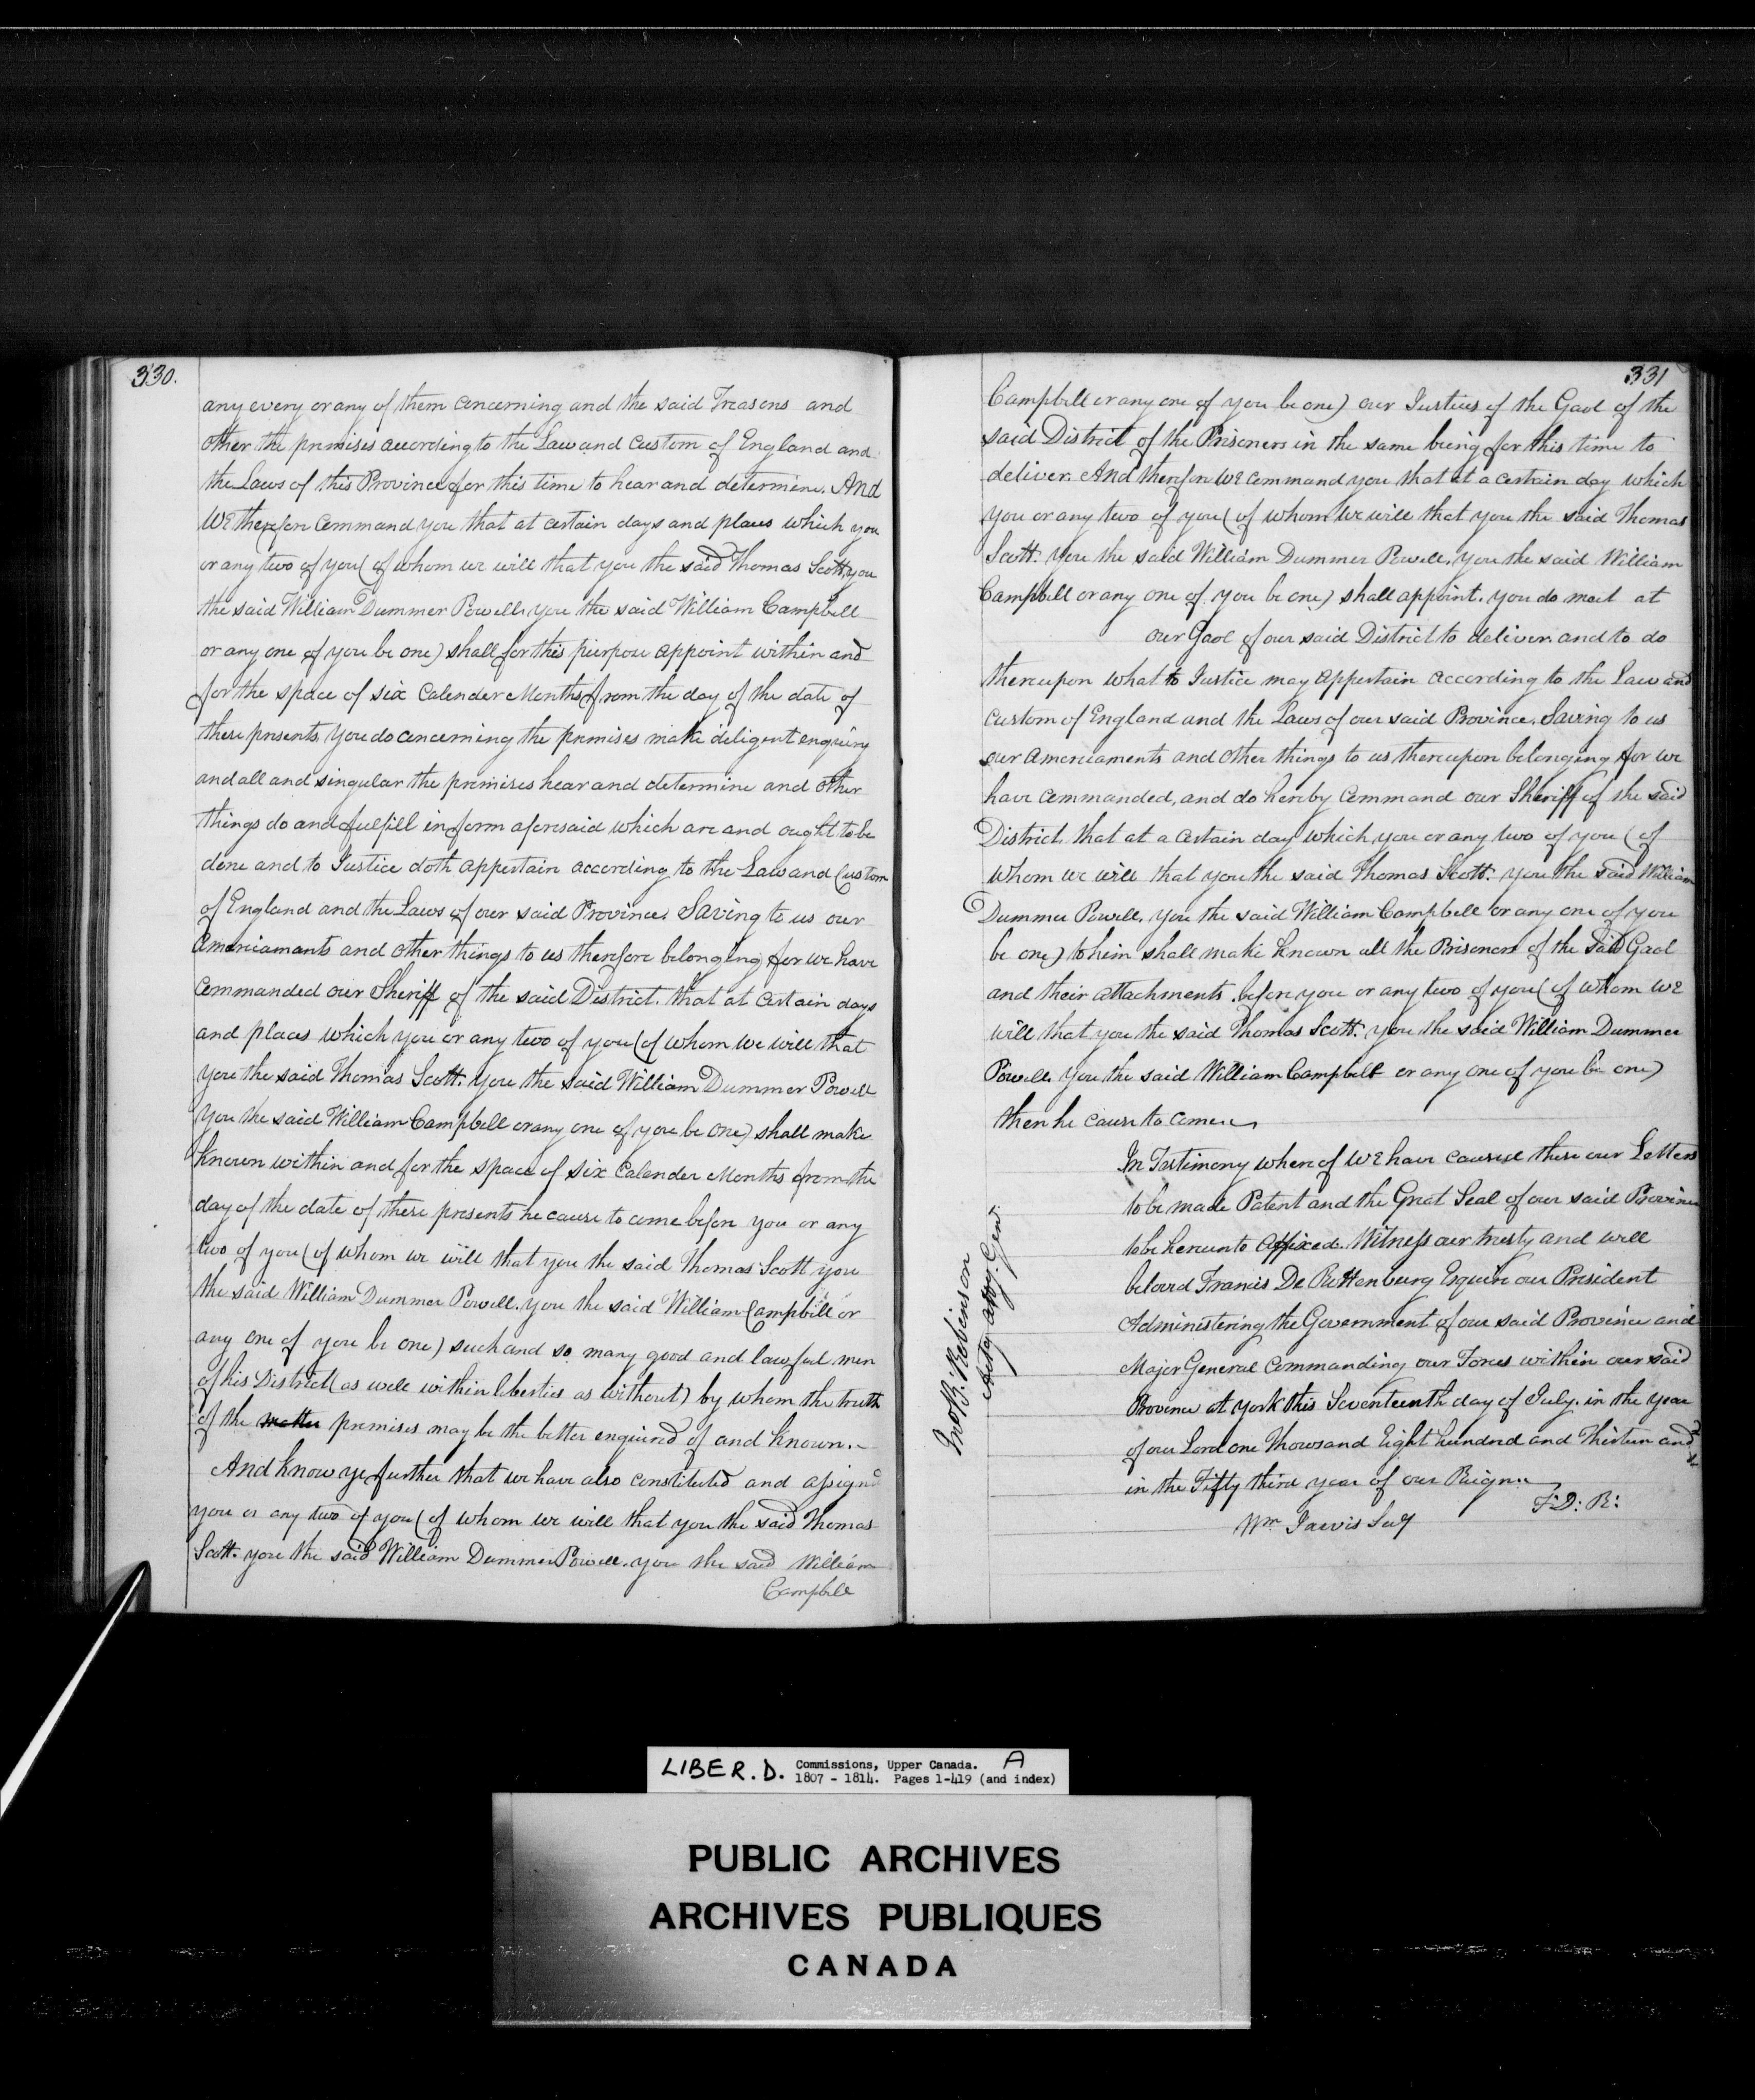 330.
any every or any of them concerning and the said Treasons and
other the premises according to the Law and Custom of England and
the Laws of this Province for this time to hear and determine. And
We therefore Command you that at certain days and places which you
or any two of you (of whom we will that you the said Thomas Scott, you
the said William Dummer Powell, you the said William Campbell
or any one of you be one) shall for this purpose appoint within and
for the space of six Calender Months from the day of the date of
these presents, you do concerning the premises make diligent enquiry
and all and singular the premises hear and determine and other
things do and fulfill in form aforesaid which are and ought to be
done and to Justice doth appertain according to the Law and Custom
of England and the Laws of our said Province. Saving to us our
Amerciaments and other things to us therefore belonging for we have
Commanded our Sheriff of the said District. that at Certain days
and places which you or any two of you (of whom we will that
you the said Thomas Scott. you the said William Dummer Powell
you the said William Campbell or any one of you be one) shall make
known within and for the space of six Calender Months from the
day of the date of these presents he cause to come before you or any
two of you (of whom we will that you the said Thomas Scott you
the said William Dummer Powell. you the said William Campbill or
any one of you be one) such and so many good and lawful men
of his District (as well within liberties as without) by whom the truth
of the matter premises may be the better enquired of and known.
And know ye further that we have also constituted and assignd
you or any two of you (of whom we will that you the said Thomas
Scott. you the said William Dummer Powell. you the said William
Campbell
331
Campbell or any one of you be one) our Justices of the Gaol of the
said District of the Prisoners in the same being for this time to
deliver. And therefore We Command you that at a certain day which
you or any two of you (of whom we will that you the said Thomas
Scott. you the said William Dummer Powell. you the said William
Campbell or any one of you be one) shall appoint. you do meet at
our Gaol of our said District to deliver and to do
thereupon what to Justice may appertain according to the Law and
custom of England and the Laws of our said Province. Saving to us
our amerciaments and other things to us thereupon belonging for we
have commanded, and do hereby Command our Sheriff of the said
District, that at a certain day which you or any two of you (of
whom we will that you the said Thomas Scott. you the said William
Dummer Powell, you the said William Campbell or any one of you
be one) to him shall make known all the Prisoners of the said Gaol
and their attachments before you or any two of you (of whom We
will that you the said Thomas Scott. you the said William Dummer
Powell. you the said William Campbell or any one of you be one)
then he cause to come
In Testimony whereof We have caused these our Letters
to be made Patent and the Great Seal of our said Province
to be hereunto affixed. Witness our trusty and well
beloved Francis De Rottenburg Esquire our President
Administering the Government of our said Province and
Major General Commanding our Forces within our said
Province at York this Seventeenth day of July. in the year
of our Lord one Thousand Eight hundred and Thirteen and
in the Fifty third year of our Reign
F: D: R:
Wm Jarvis Secy
Jno B: Robinson
Actg atty. Genl.
LIBER. D. Commissions, Upper Canada. A
1807 - 1814. Pages 1-419 (and index)
PUBLIC ARCHIVES
ARCHIVES PUBLIQUES
CANADA